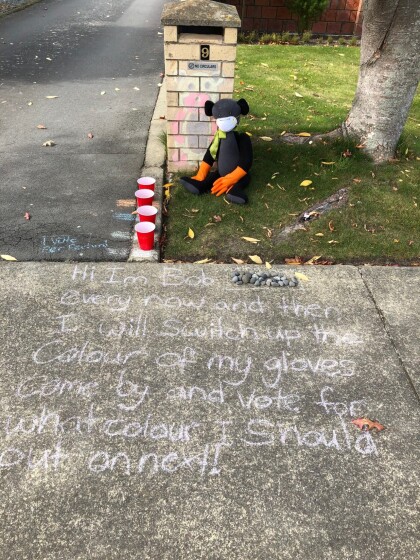 9
NO CIRCULARS
1 Vote
Per Person!
Hi Im Bob
every now and then
I will Switch up the
Colour of my gloves
Come by and vote for
what colour I Should
put on next!